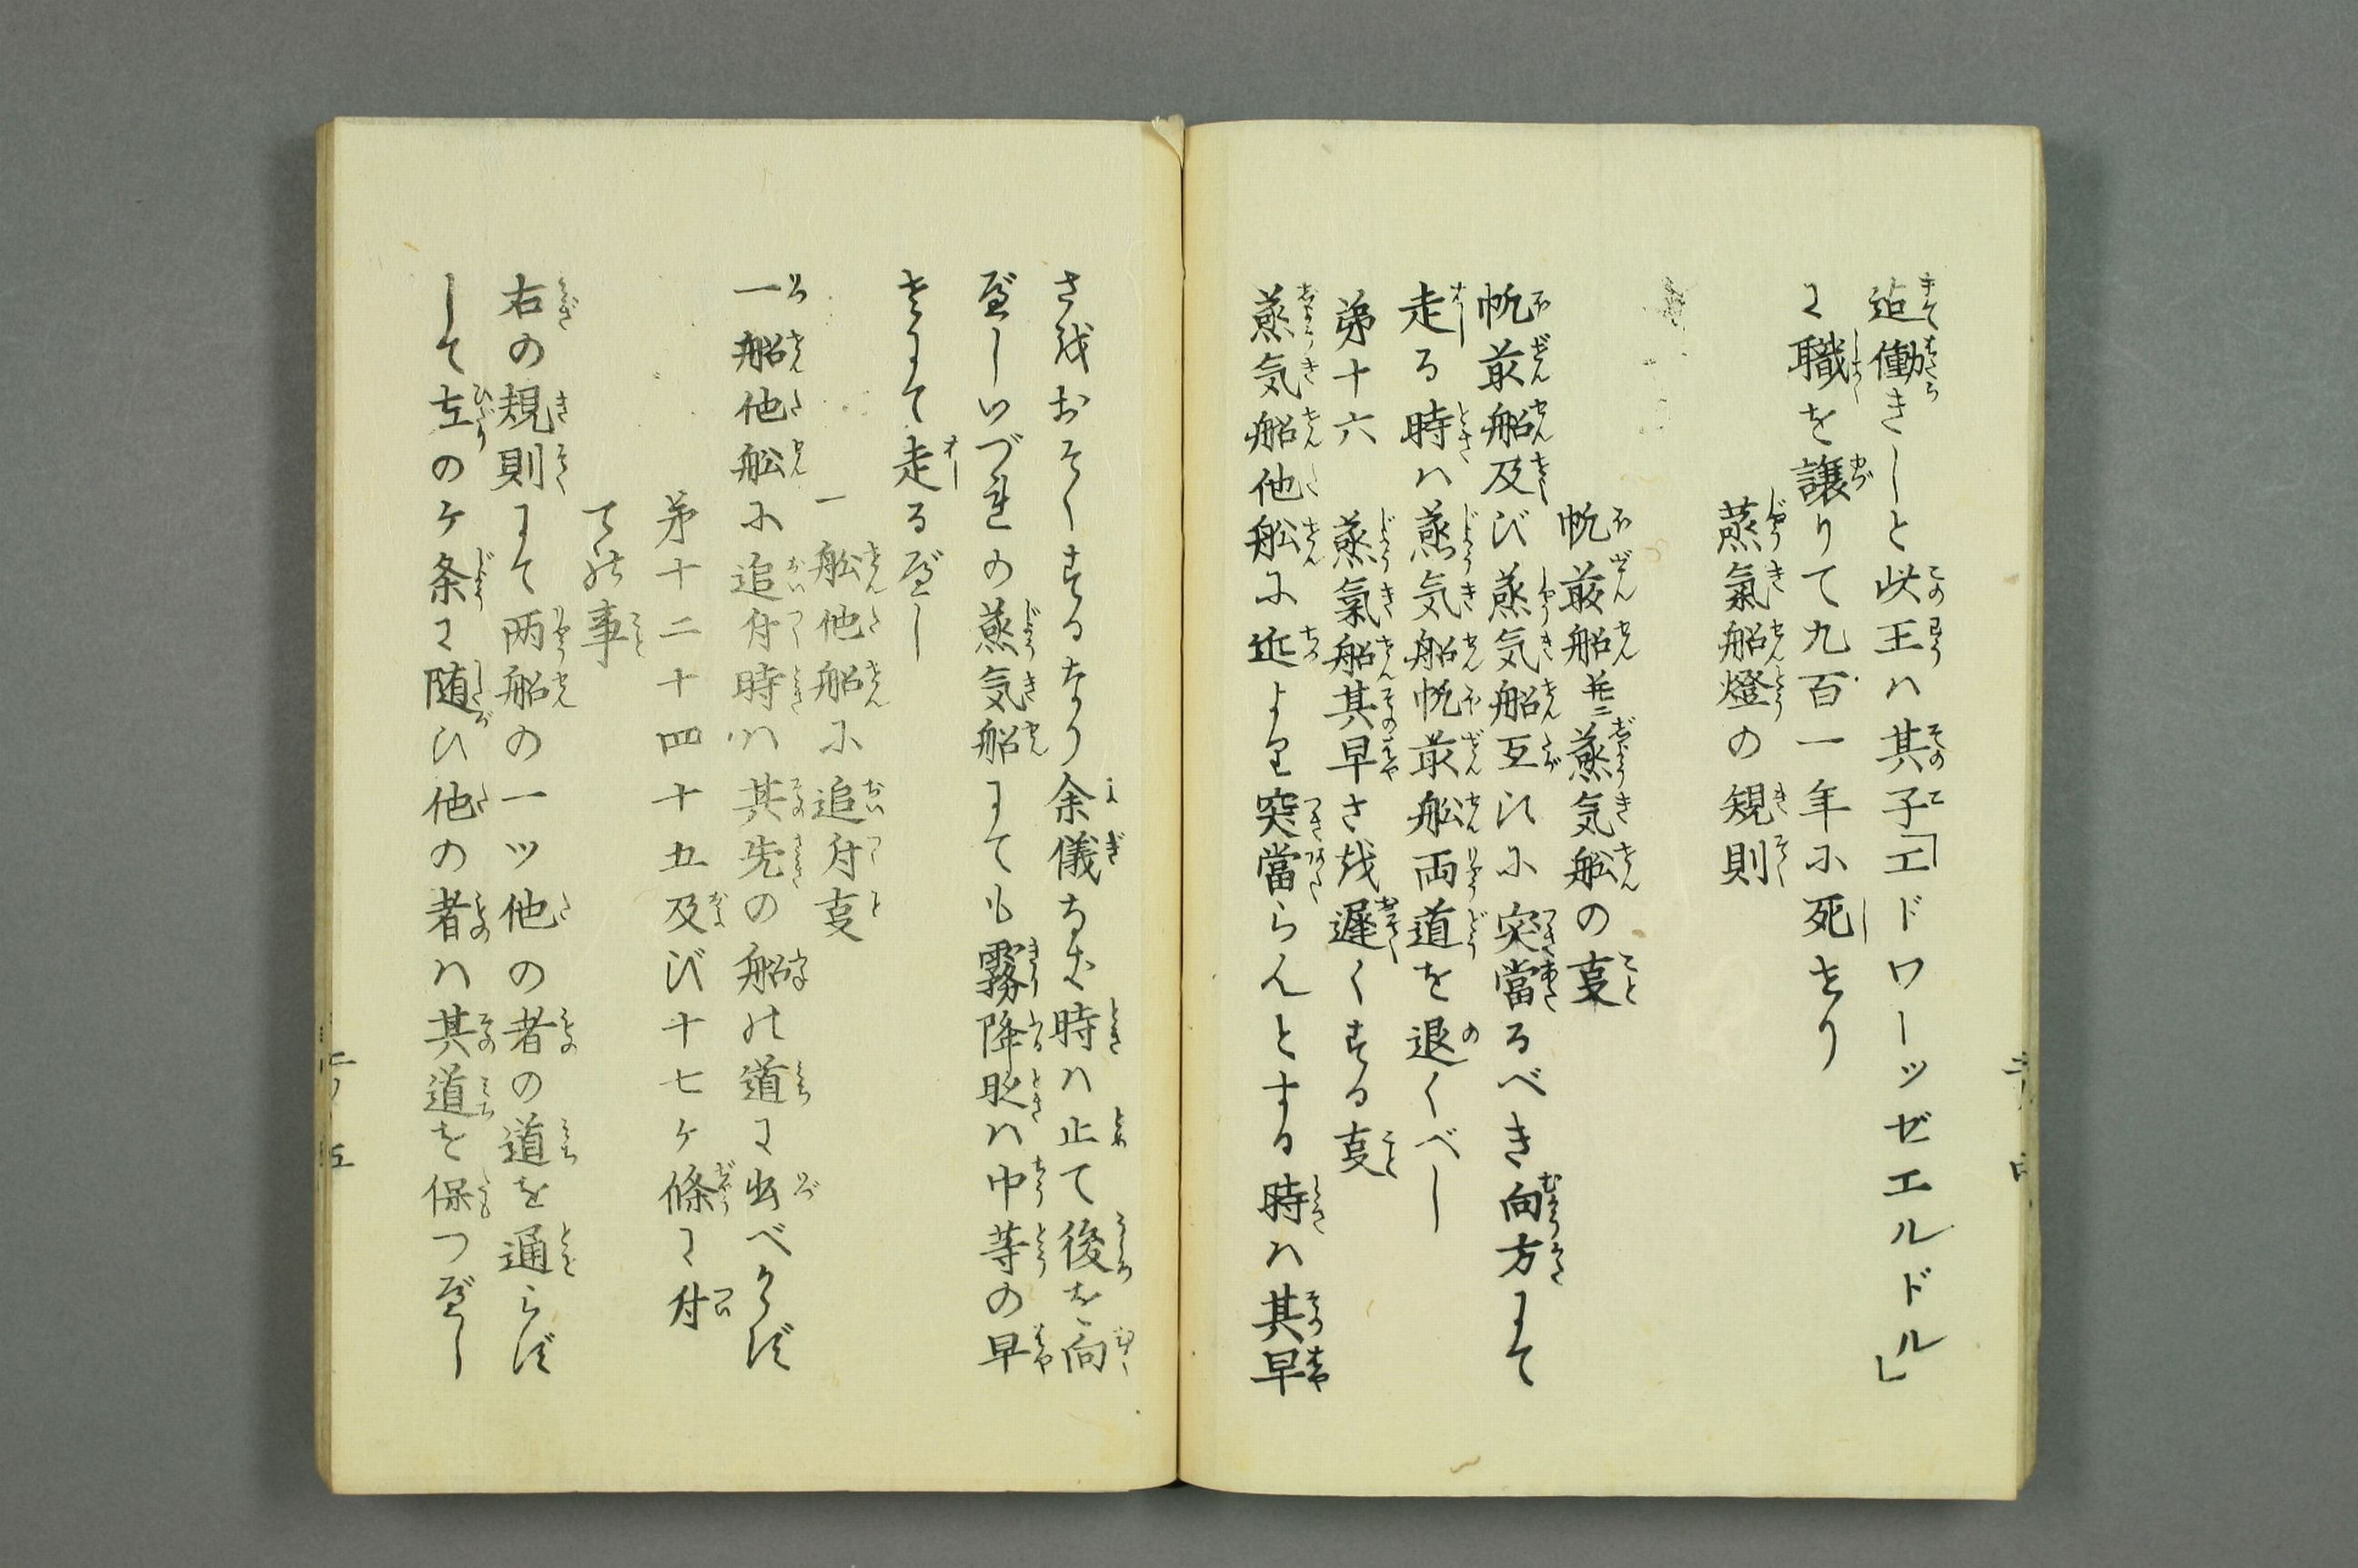 迠働きしと此王ハ其子「エドワーッゼエルドル」
に職を譲りて九百一年に死せり
蒸氣船燈の規則
帆前船並ニ蒸気船の叓
帆前船及び蒸気船互ひに突當るべき向方にて
走る時ハ蒸気船帆前船両道を退くべし
第十六　蒸氣船其早さ越遅くする叓
蒸気船他舩に近より突當らんとする時ハ其早
さ越おそくするなり余儀なき時ハ止て後を向
べしいづれの蒸気船にても霧降時ハ巾等の早
さにて走るべし
一舩他船に追付叓
一船他舩に追付時ハ其先の船の道に出べからず
第十二十四十五及び十七ケ條に付
ての事
右の規則にて両船の一ッ他の者の道を通らず
して左のケ条に随ひ他の者ハ其道を保つべし